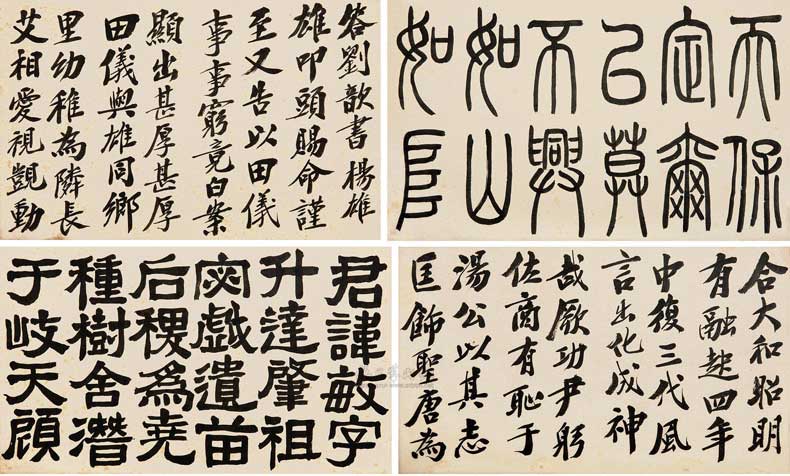 天保
定爾
以莫
不興
如山
如阜
答劉歆書楊雄
雄叩頭賜命謹
至又告以田儀
事事窮竟白案
顯出甚厚甚厚
田儀與雄同鄉
里幼稚為隣長
艾相愛視覬動
合大和昭明
有融越四年
中復三代風
言出化成神
哉厥功尹躬
佐商有恥于
湯公以其志
匡飭聖唐為
君諱敏字
升達肇祖
宓戲遺苗
后稷為堯
種樹舍潛
于岐天顧